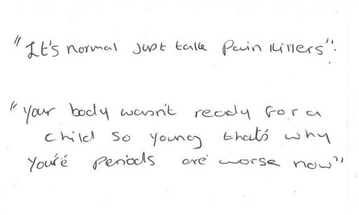 "It's normal just take Pain killers".
"your body wasn't ready for a
child so young that's why
youre' periods are worse now"